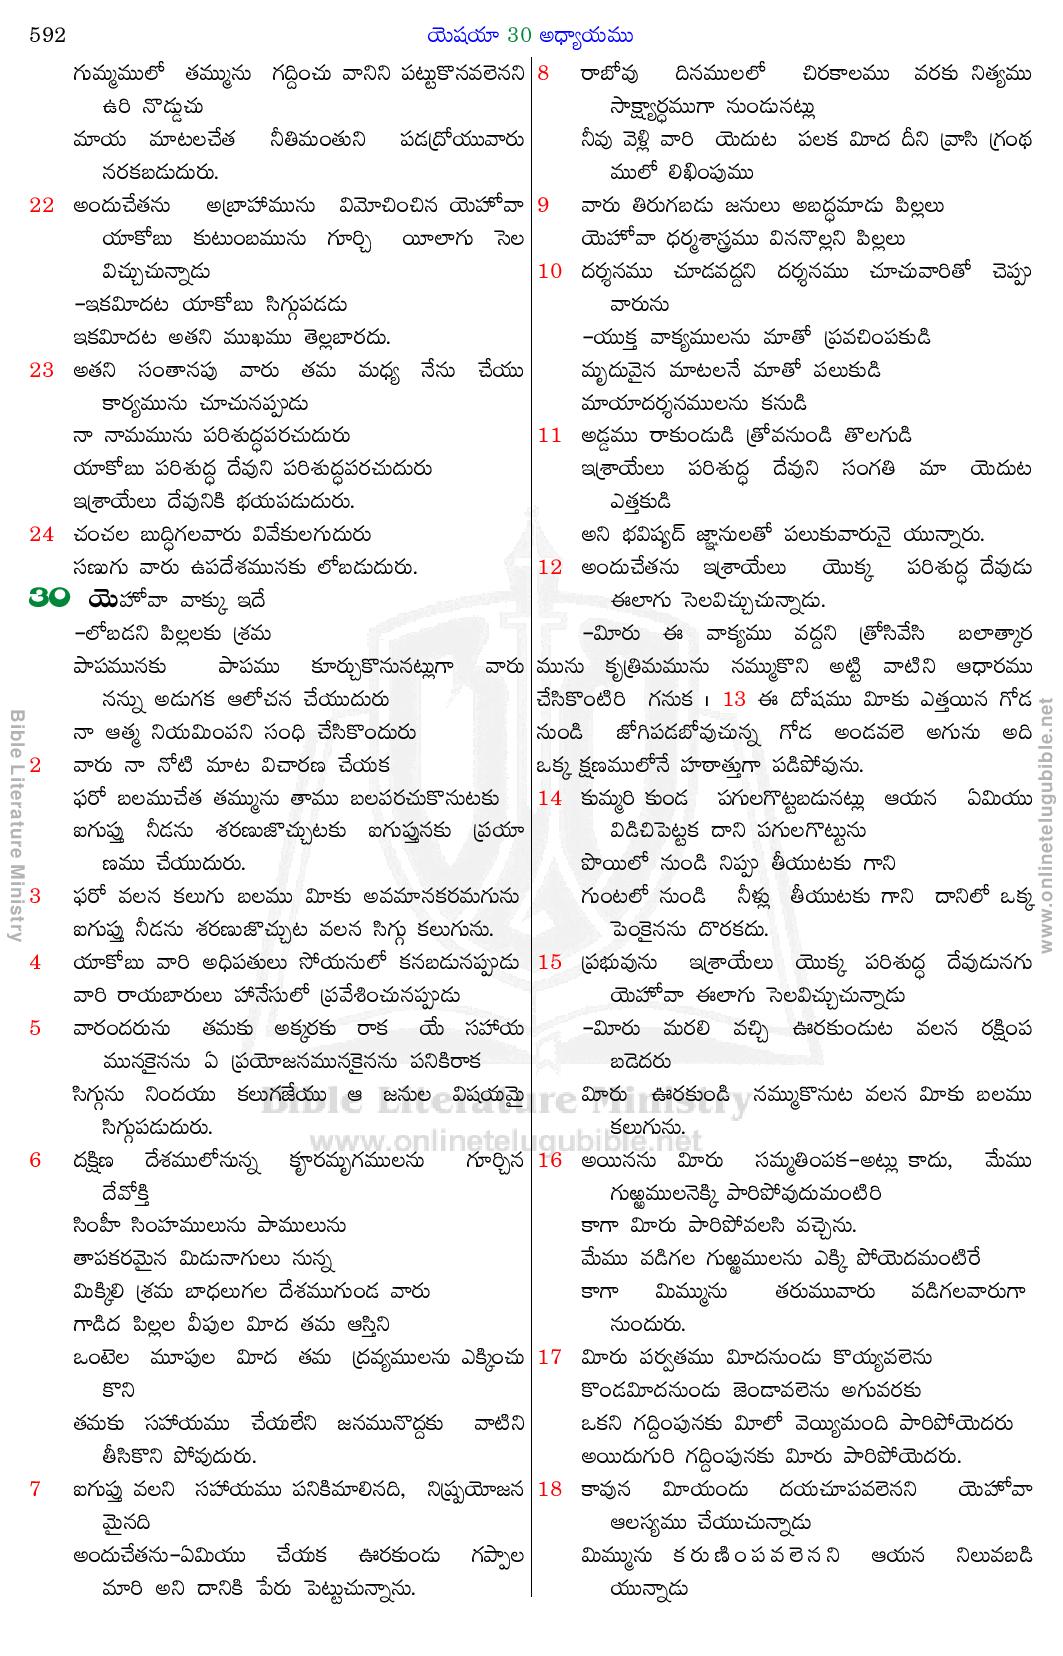 592
యెషయా 30 అధ్యాయము
గుమ్మములో తమ్మును గద్దించు వానిని పట్టుకొనవలెనని
ఉరి నొడ్డుచు
మాయ మాటలచేత నీతిమంతుని పడద్రోయువారు
నరకబడుదురు.
22 అందుచేతను అబ్రాహామును విమోచించిన యెహోవా
యాకోబు కుటుంబమును గూర్చి యీలాగు సెల
విచ్చుచున్నాడు
–ఇకమీదట యాకోబు సిగ్గుపడడు
ఇకమీదట అతని ముఖము తెల్లబారదు.
23 అతని సంతానపు వారు తమ మధ్య నేను చేయు
కార్యమును చూచునప్పుడు
నా నామమును పరిశుద్ధపరచుదురు
యాకోబు పరిశుద్ధ దేవుని పరిశుద్ధపరచుదురు
ఇశ్రాయేలు దేవునికి భయపడుదురు.
24 చంచల బుద్ధిగలవారు వివేకులగుదురు
సణుగు వారు ఉపదేశమునకు లోబడుదురు.
30 యెహోవా వాక్కు ఇదే
–లోబడని పిల్లలకు శ్రమ
పాపమునకు పాపము కూర్చుకొనునట్లుగా వారు
నన్ను అడుగక ఆలోచన చేయుదురు
నా ఆత్మ నియమింపని సంధి చేసికొందురు
2 వారు నా నోటి మాట విచారణ చేయక
ఫరో బలముచేత తమ్మును తాము బలపరచుకొనుటకు
ఐగుప్తు నీడను శరణుజొచ్చుటకు ఐగుప్తునకు ప్రయా
ణము చేయుదురు.
3 ఫరో వలన కలుగు బలము మీకు అవమానకరమగును
ఐగుప్తు నీడను శరణుజొచ్చుట వలన సిగ్గు కలుగును.
4 యాకోబు వారి అధిపతులు సోయనులో కనబడునప్పుడు
వారి రాయబారులు హానేసులో ప్రవేశించునప్పుడు
5 వారందరును తమకు అక్కరకు రాక యే సహాయ
మునకైనను ఏ ప్రయోజనమునకైనను పనికిరాక
సిగ్గును నిందయు కలుగజేయు ఆ జనుల విషయమై
సిగ్గుపడుదురు.
6 దక్షిణ దేశములోనున్న క్రూరమృగములను గూర్చిన
దేవోక్తి
సింహీ సింహములును పాములును
తాపకరమైన మిడునాగులు నున్న
మిక్కిలి శ్రమ బాధలుగల దేశముగుండ వారు
గాడిద పిల్లల వీపుల మీద తమ ఆస్తిని
ఒంటెల మూపుల మీద తమ ద్రవ్యములను ఎక్కించు
కొని
తమకు సహాయము చేయలేని జనమునొద్దకు వాటిని
తీసికొని పోవుదురు.
7 ఐగుప్తు వలని సహాయము పనికిమాలినది, నిష్ప్రయోజన
మైనది
అందుచేతను–ఏమియు చేయక ఊరకుండు గప్పాల
మారి అని దానికి పేరు పెట్టుచున్నాను.
8 రాబోవు దినములలో చిరకాలము వరకు నిత్యము
సాక్ష్యార్థముగా నుండునట్లు
నీవు వెళ్లి వారి యెదుట పలక మీద దీని వ్రాసి గ్రంథ
ములో లిఖింపుము
9 వారు తిరుగబడు జనులు అబద్ధమాడు పిల్లలు
యెహోవా ధర్మశాస్త్రము విననొల్లని పిల్లలు
10 దర్శనము చూడవద్దని దర్శనము చూచువారితో చెప్పు
వారును
–యుక్త వాక్యములను మాతో ప్రవచింపకుడి
మృదువైన మాటలనే మాతో పలుకుడి
మాయాదర్శనములను కనుడి
11 అడ్డము రాకుండుడి త్రోవనుండి తొలగుడి
ఇశ్రాయేలు పరిశుద్ధ దేవుని సంగతి మా యెదుట
ఎత్తకుడి
అని భవిష్యద్ జ్ఞానులతో పలుకువారునై యున్నారు.
12 అందుచేతను ఇశ్రాయేలు యొక్క పరిశుద్ధ దేవుడు
ఈలాగు సెలవిచ్చుచున్నాడు.
–మీరు ఈ వాక్యము వద్దని త్రోసివేసి బలాత్కార
మును కృత్రిమమును నమ్ముకొని అట్టి వాటిని ఆధారము
చేసికొంటిరి గనుక । 13 ఈ దోషము మీకు ఎత్తయిన గోడ
నుండి జోగిపడబోవుచున్న గోడ అండవలె అగును అది
ఒక్క క్షణములోనే హఠాత్తుగా పడిపోవును.
14 కుమ్మరి కుండ పగులగొట్టబడునట్లు ఆయన ఏమియు
విడిచిపెట్టక దాని పగులగొట్టును
పొయిలో నుండి నిప్పు తీయుటకు గాని
గుంటలో నుండి నీళ్లు తీయుటకు గాని దానిలో ఒక్క
పెంకైనను దొరకదు.
15 ప్రభువును ఇశ్రాయేలు యొక్క పరిశుద్ధ దేవుడునగు
యెహోవా ఈలాగు సెలవిచ్చుచున్నాడు
–మీరు మరలి వచ్చి ఊరకుండుట వలన రక్షింప
బడెదరు
మీరు ఊరకుండి నమ్ముకొనుట వలన మీకు బలము
కలుగును.
16 అయినను మీరు సమ్మతింపక–అట్లు కాదు, మేము
గుఱ్ఱములనెక్కి పారిపోవుదుమంటిరి
కాగా మీరు పారిపోవలసి వచ్చెను.
మేము వడిగల గుఱ్ఱములను ఎక్కి పోయెదమంటిరే
కాగా మిమ్మును తరుమువారు వడిగలవారుగా
నుందురు.
17 మీరు పర్వతము మీదనుండు కొయ్యవలెను
కొండమీదనుండు జెండావలెను అగువరకు
ఒకని గద్దింపునకు మీలో వెయ్యిమంది పారిపోయెదరు
అయిదుగురి గద్దింపునకు మీరు పారిపోయెదరు.
18 కావున మీయందు దయచూపవలెనని యెహోవా
ఆలస్యము చేయుచున్నాడు
మిమ్మును కరుణింపవలెనని ఆయన నిలువబడి
యున్నాడు
Bible Literature Ministry
www.onlinetelugubible.net
Bible Literature Ministry
www.onlinetelugubible.net